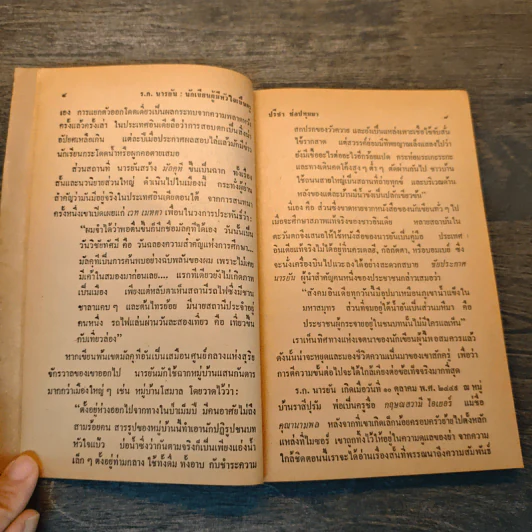 ๔ ร.ก. นารายัน : นักเขียนผู้มีชีวิตเพื่อ
เอง การแยกตัวออกโดดเดี่ยวเป็นผลกระทบจากความพลาดหวัง
ครั้งแล้วครั้งเล่า ในประเทศอินเดียถือว่าการสอบตกเป็นสิ่งน่า
อัปยศเหลือเกิน แต่ละปีเมื่อประกาศผลสอบไล่แล้วมักมีข่าว
นักเรียนกระโดดน้ำหรือผูกคอตายเสมอ
ส่วนสถานที่ นารายันสร้าง มัลคุดี ขึ้นเป็นฉาก ทั้งเรื่อง
สั้นและนวนิยายส่วนใหญ่ ดำเนินไปในเมืองนี้ กระทั่งผู้อ่าน
สำคัญว่ามันมีอยู่จริงในประเทศอินเดียตอนใต้ จากการสนทนา
ครั้งหนึ่งเขาเปิดเผยแก่ เวท เมหตา เพื่อนในวงการประพันธ์ว่า
"ผมจำได้ว่าพอตื่นขึ้นก็นึกชื่อมัลคุดีได้เอง วันนั้นเป็น
วันวิชัยทัศมิ คือ วันฉลองความสำคัญแห่งการศึกษา...
มัลคุดีเป็นการค้นพบอย่างฉับพลันของผม เพราะไม่เคย
มีเค้าในสมองมาก่อนเลย.... แรกทีเดียวยังไม่เกิดภาพ
เป็นเมือง เพียงแต่หลับตาเห็นสถานีรถไฟ ซึ่งมีชาน
ชาลาแคบ ๆ และต้นไทรย้อย มีนายสถานีประจำอยู่
คนหนึ่ง รถไฟแล่นผ่านวันละสองเที่ยว คือ เที่ยวขึ้น
กับเที่ยวล่อง"
หากเขียนทันเขตมัลคุดีอันเป็นเสมือนศูนย์กลางแห่งสุริย
จักรวาลของเขาออกไป นารายันมักใช้ฉากหมู่บ้านแสนกันดาร
มากกว่าเมืองใหญ่ ๆ เช่น หมู่บ้านโสมาล โดยวาดไว้ว่า:
"ตั้งอยู่ห่างออกไปจากทางในป่าเม็มปิ มีคนอาศัยไม่ถึง
สามร้อยคน สารรูปของหมู่บ้านนี้ทำเอานักปฏิรูปชนบท
หัวใจแป้ว บ่อน้ำซึ่งว่ากันตามจริงก็เป็นเพียงแอ่งน้ำ
เล็ก ๆ ตั้งอยู่ท่ามกลาง ใช้ทั้งดื่ม ทั้งอาบ กับชำระความ
ปรีชา ช่อปทุมมา
สกปรกของวัวควาย และยังเป็นแหล่งเพาะเชื้อไข้จับสั้น
ไข้รากสาด แต่สวรรค์เมื่อมีทิพยญาณเล็งแลลงไปว่า
ยังมีเชื้ออะไรต่ออะไรอีกร้อยแปด
และทางเดินคดโค้งสูง ๆ ต่ำ ๆ ตัดผ่านกันไป ชาวบ้าน
ใช้ถนนสายใหญ่เป็นสถานที่ถ่ายทุกข์ และบริเวณด้าน
หลังของแต่ละบ้านมีน้ำขังเป็นปลักเขียวขึ้น"
นี่เอง คือ ส่วนที่ขาดหายจากหนังสือของนักเขียนทั่ว ๆ ไป
เมื่อจะศึกษาสภาพแท้จริงของชาวสินเดีย หลายสถาบันใน
ตะวันตกจึงเสนอให้ใช้หนังสือของนารายันเป็นคู่มือ ประเทศ
อินเดียแท้จริงไม่ได้อยู่ที่นครเดลี, กัลกัตตา, หรือบอมเบย์ ซึ่ง
จะนั่งเครื่องบินไปแวะลงได้อย่างสะดวกสบาย ชัยประกาศ
นารยัน ผู้นำสำคัญคนหนึ่งของประชาชนกล่าวเสมอว่า
"สังคมอินเดียทุกวันนี้มีอุปมาเหมือนภูเขาน้ำแข็งใน
มหาสมุทร ส่วนที่จมอยู่ใต้น้ำอันเป็นส่วนแท้มา คือ
ประชาชนผู้กระจายอยู่ในชนบทนั้นไม่มีใครแลเห็น"
เราเห็นทิศทางแห่งเจตนาของนักเขียนผู้นี้พอสมควรแล้ว
ดังนั้นน่าจะหยุดและมองชีวิตความเป็นมาของเขาสักครู่ เพื่อว่า
การตีความขั้นต่อไปจะได้ใกล้เคียงต่อข้อเท็จจริงมากที่สุด
ร.ก. นารายัน เกิดเมื่อวันที่ ๑๐ ตุลาคม พ.ศ. ๒๔๔๙ ณ หมู่
บ้านราสีปุรัม พ่อเป็นครูชื่อ กฤษณสวามี ไอเยอร์ แม่ชื่อ
คุณานามพล หลังจากที่เขาเกิดเล็กน้อยครอบครัวย้ายไปตั้งหลัก
แหล่งที่ไมซอร์ เขาถูกทิ้งไว้ให้อยู่ในความดูแลของย่า จากความ
ใกล้ชิดตอนนี้เราจะได้อ่านเรื่องสั้นที่พรรณนาถึงความสัมพันธ์